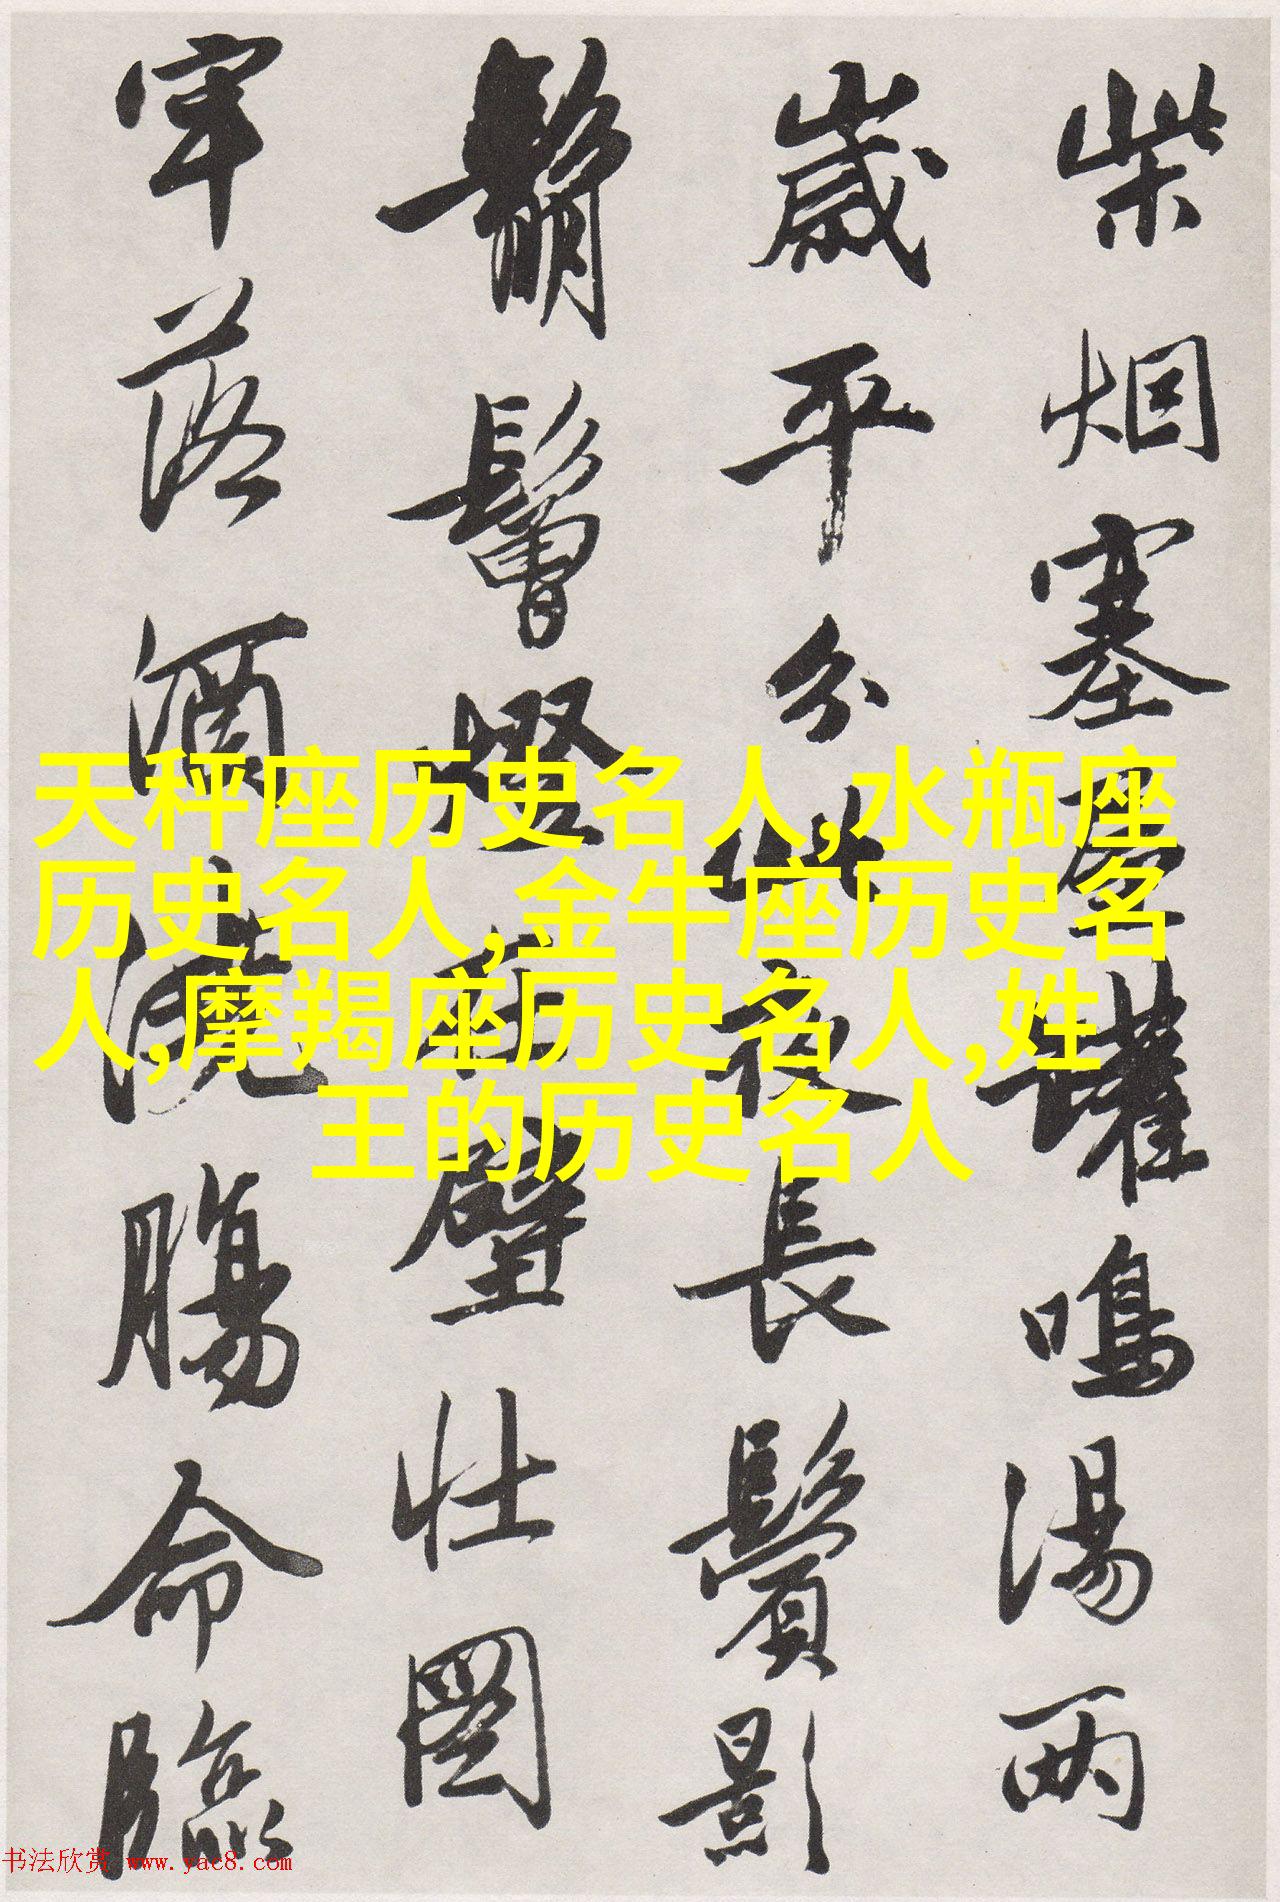 柴烟塞屋罐鳴湯两
歲平分此夜長鬢影
鬅鬙燈在壁壮圖
牢落酒澆腸命臨
天秤座历史名人,水瓶座
历史名人,金牛座历史名
人,摩羯座历史名人,姓
王的历史名人
书法欣赏 www.yac8.com